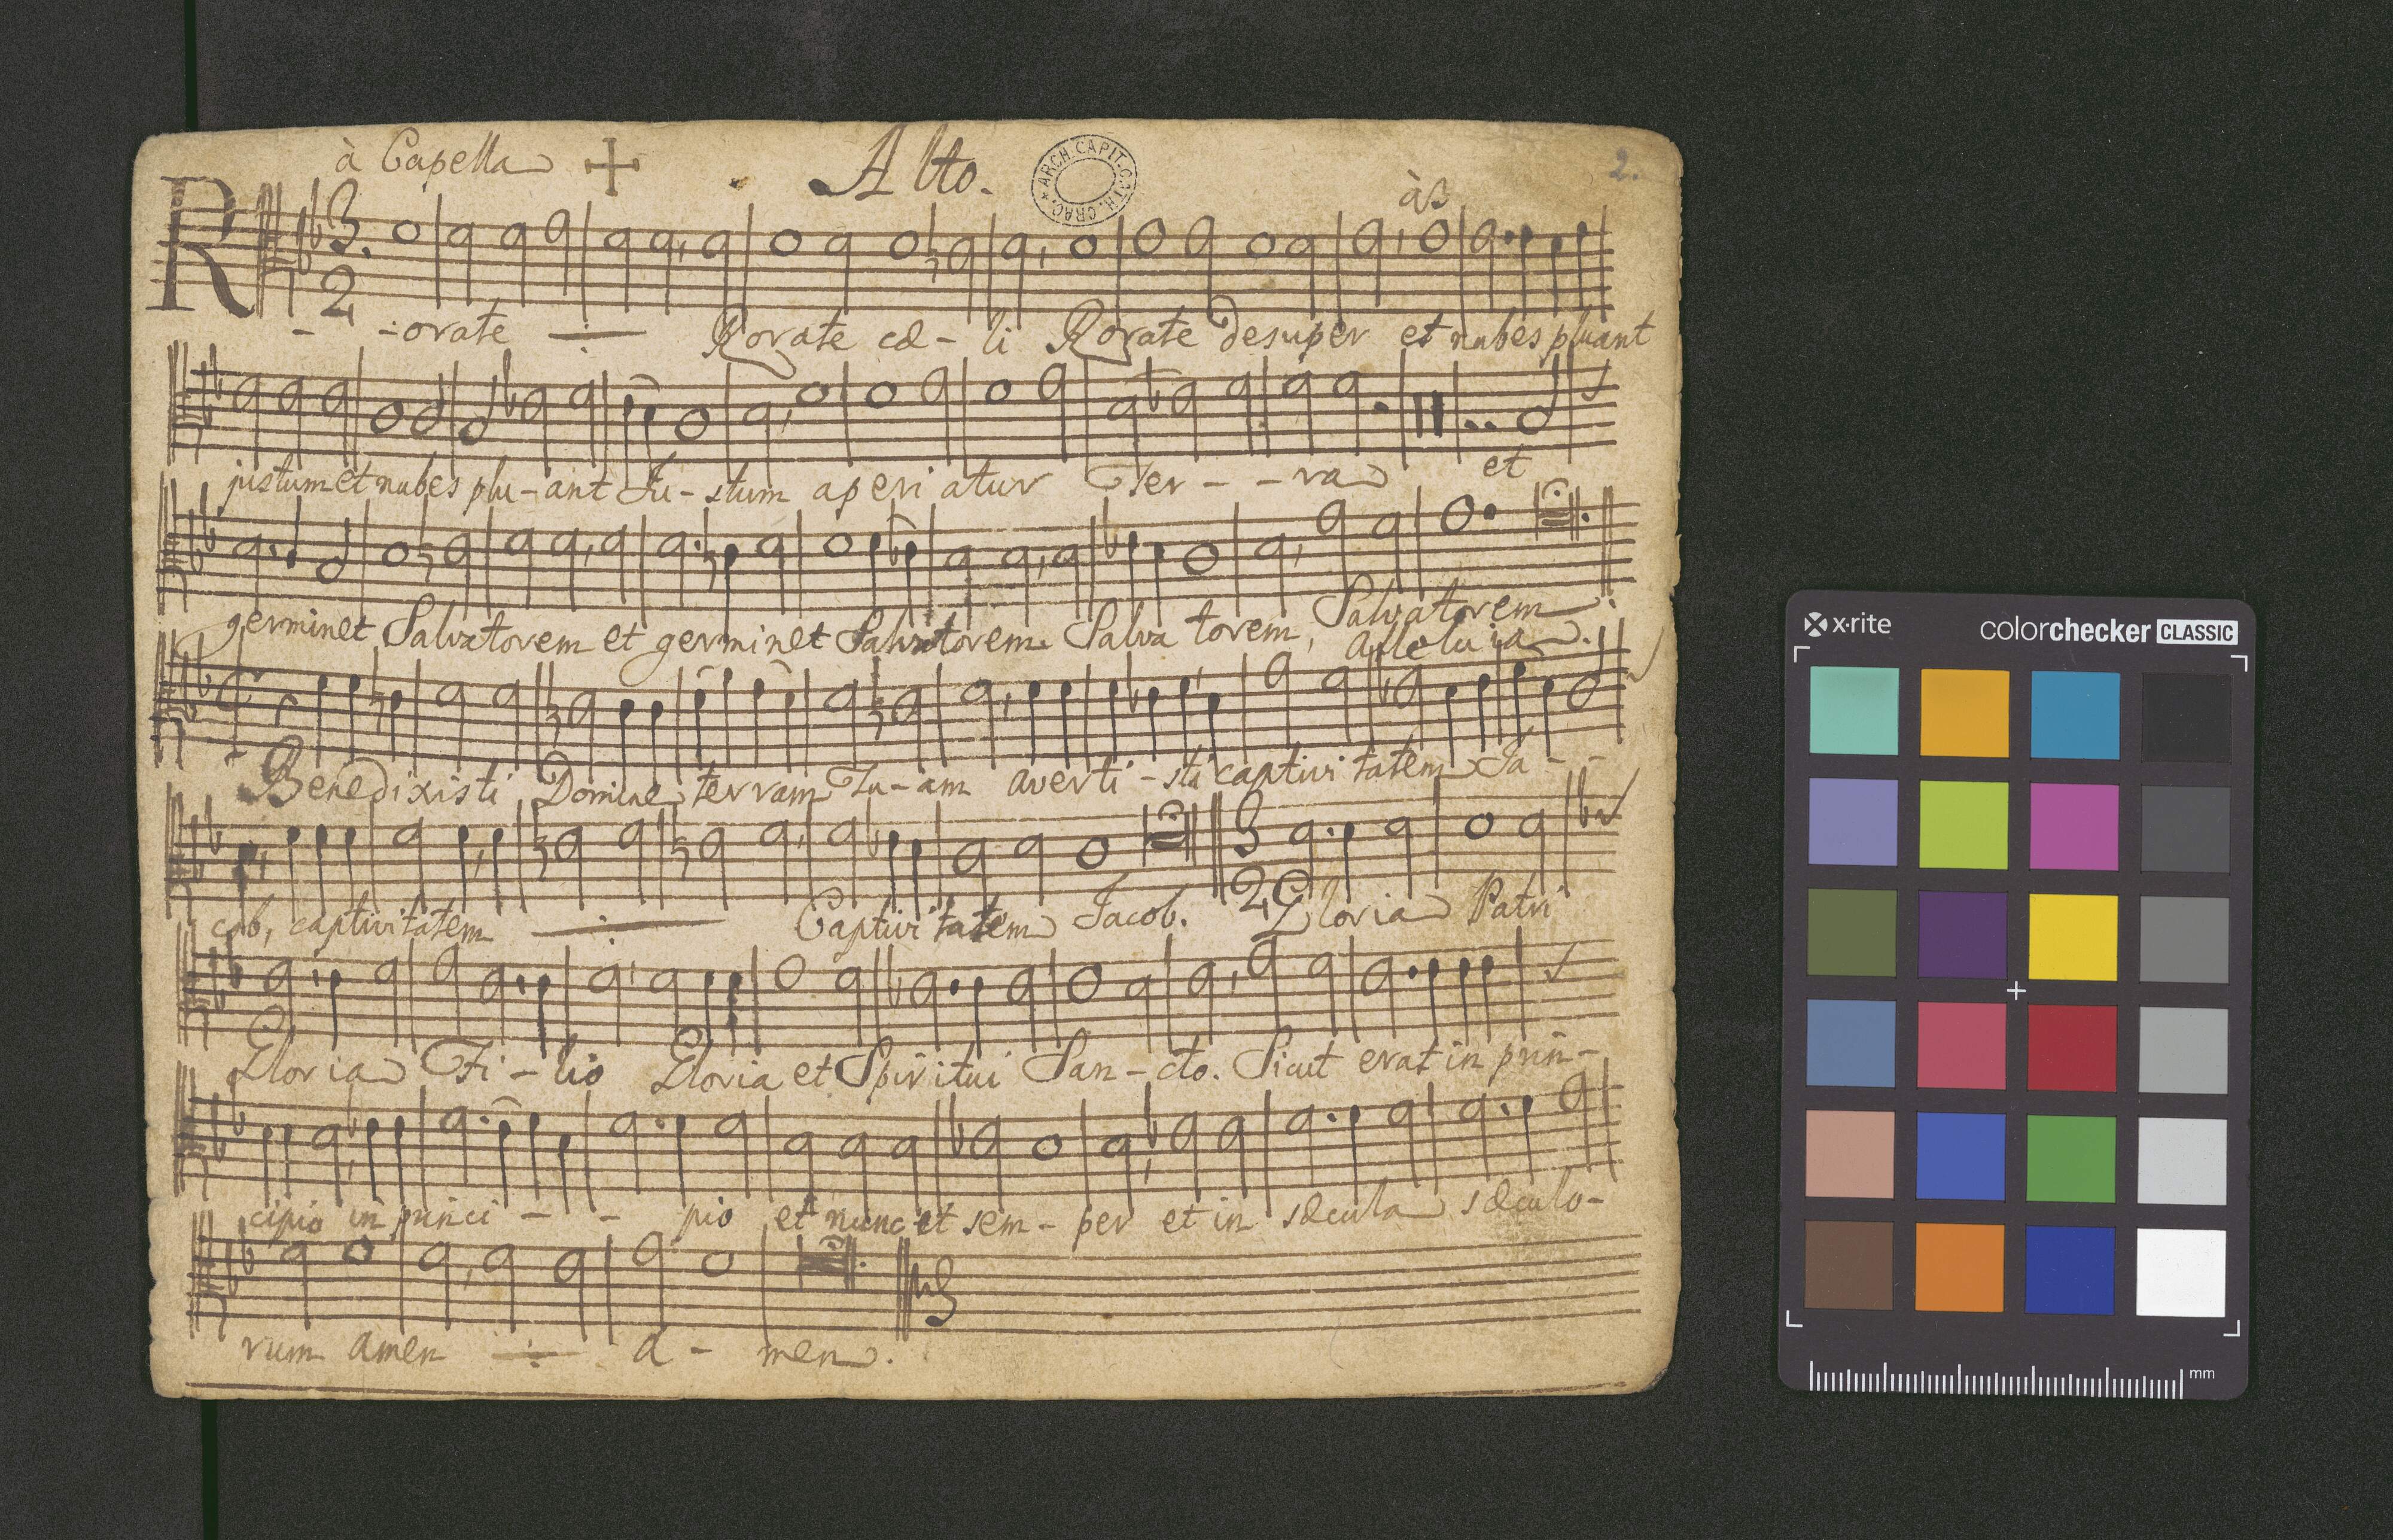 à Capella + Alto.
ARCH. CAPIT. CATH. CRAC.
2.
à3
3.
2
R - -:orate -:- Rorate cæ - li Rorate desuper et nubes pluant
justum et nubes plu-ant Ju-stum aperiatur Ter - - ra et
germinet Salvatorem et germinet Salvatorem Salvatorem, Salvatorem
alleluia.
Benedixisti Domine terram Tu-am averti-sti captivitatem Ja - -
3
2
cob, captivitatem -:- Captivitatem Jacob. Gloria Patri
Gloria Fi - lio Gloria et Spiritui San - cto. Sicut erat in prin-
cipio in princi - - pio et nunc et sem - per et in sæcula sæculo-
rum amen -:- a - men.
x·rite
colorchecker CLASSIC
mm